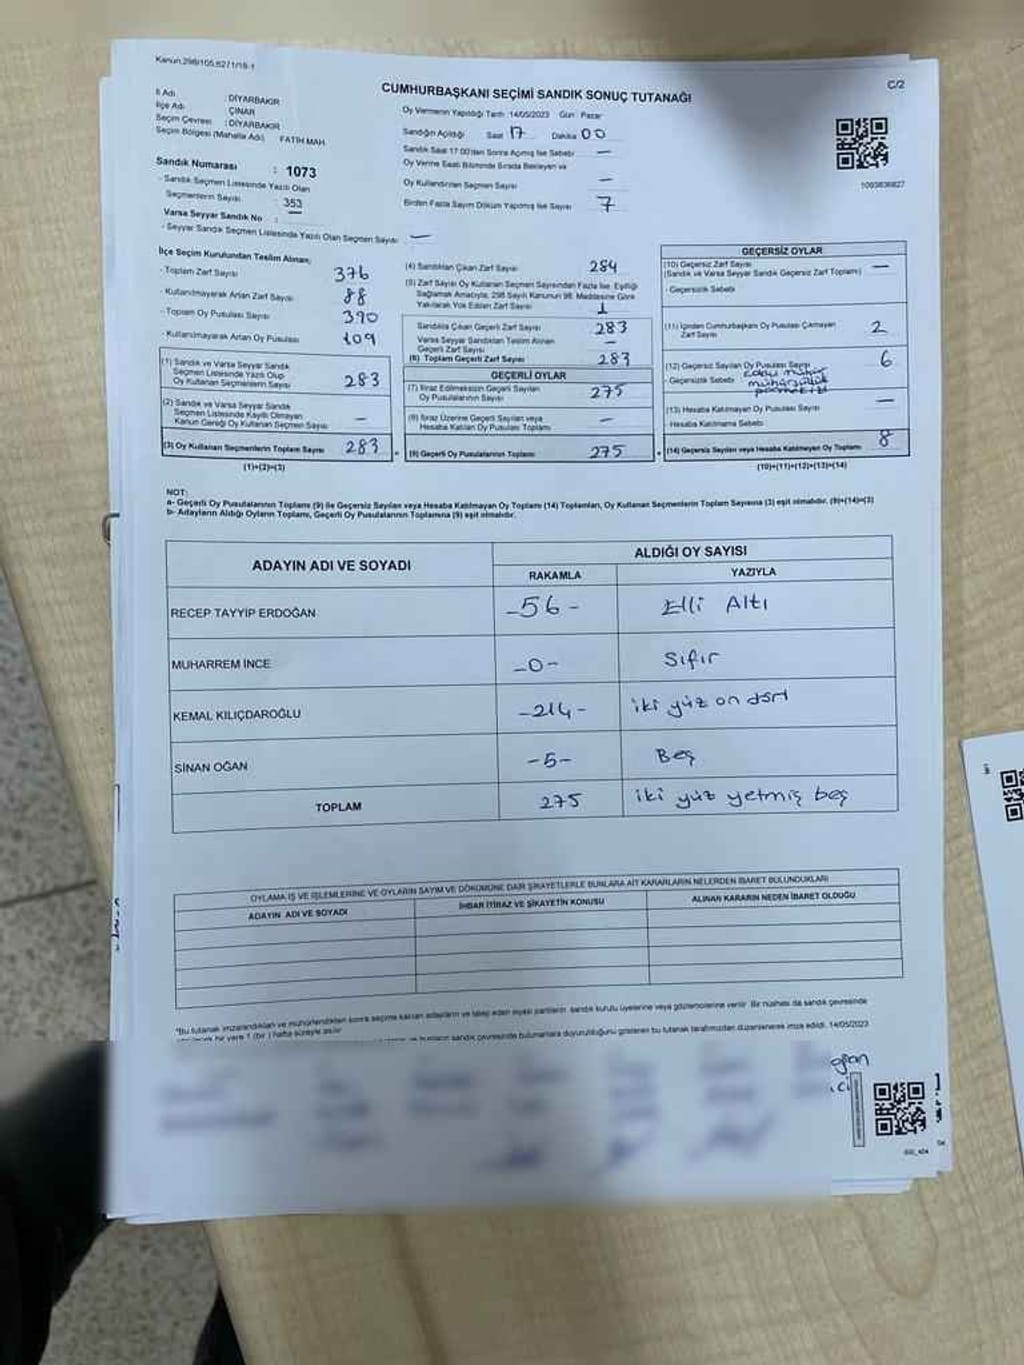 Kanun.298/105,6271/19-1
C/2
CUMHURBAŞKANI SEÇİMİ SANDIK SONUÇ TUTANAĞI
İl Adı : DİYARBAKIR
İlçe Adı : ÇINAR
Seçim Çevresi : DİYARBAKIR
Seçim Bölgesi (Mahalle Adı) FATİH MAH.
Sandık Numarası : 1073
- Sandık Seçmen Listesinde Yazılı Olan
Seçmenlerin Sayısı : 353
Varsa Seyyar Sandık No : —
- Seyyar Sandık Seçmen Listesinde Yazılı Olan Seçmen Sayısı —
Oy Vermenin Yapıldığı Tarih 14/05/2023 Gün Pazar
Sandığın Açıldığı Saat 17 Dakika 00
Sandık Saat 17:00'dan Sonra Açılmış İse Sebebi —
Oy Verme Saati Bitiminde Sırada Bekleyen ve
Oy Kullandırılan Seçmen Sayısı —
Birden Fazla Sayım Döküm Yapılmış İse Sayısı 7
1093636827
İlçe Seçim Kurulundan Teslim Alınan;
- Toplam Zarf Sayısı 376
- Kullanılmayarak Artan Zarf Sayısı 88
- Toplam Oy Pusulası Sayısı 390
- Kullanılmayarak Artan Oy Pusulası 109
(1) Sandık ve Varsa Seyyar Sandık
Seçmen Listesinde Yazılı Olup
Oy Kullanan Seçmenlerin Sayısı 283
(2) Sandık ve Varsa Seyyar Sandık
Seçmen Listesinde Kayıtlı Olmayan
Kanun Gereği Oy Kullanan Seçmen Sayısı —
(3) Oy Kullanan Seçmenlerin Toplam Sayısı 283
(1)+(2)=(3)
(4) Sandıktan Çıkan Zarf Sayısı 284
(5) Zarf Sayısı Oy Kullanan Seçmen Sayısından Fazla İse, Eşitliği
Sağlamak Amacıyla, 298 Sayılı Kanunun 98. Maddesine Göre
Yakılarak Yok Edilen Zarf Sayısı 1
Sandıkta Çıkan Geçerli Zarf Sayısı 283
Varsa Seyyar Sandıktan Teslim Alınan
Geçerli Zarf Sayısı —
(6) Toplam Geçerli Zarf Sayısı 283
GEÇERLİ OYLAR
(7) İtiraz Edilmeksizin Geçerli Sayılan
Oy Pusulalarının Sayısı 275
(8) İtiraz Üzerine Geçerli Sayılan veya
Hesaba Katılan Oy Pusulası Toplamı —
(9) Geçerli Oy Pusulalarının Toplamı 275
GEÇERSİZ OYLAR
(10) Geçersiz Zarf Sayısı —
(Sandık ve Varsa Seyyar Sandık Geçersiz Zarf Toplamı)
- Geçersizlik Sebebi
(11) İçinden Cumhurbaşkanı Oy Pusulası Çıkmayan
Zarf Sayısı 2
(12) Geçersiz Sayılan Oy Pusulası Sayısı 6
- Geçersizlik Sebebi
(13) Hesaba Katılmayan Oy Pusulası Sayısı —
- Hesaba Katılmama Sebebi
(14) Geçersiz Sayılan veya Hesaba Katılmayan Oy Toplamı 8
(10)+(11)+(12)+(13)=(14)
NOT:
a- Geçerli Oy Pusulalarının Toplamı (9) ile Geçersiz Sayılan veya Hesaba Katılmayan Oy Toplamı (14) Toplamları, Oy Kullanan Seçmenlerin Toplam Sayısına (3) eşit olmalıdır. (9)+(14)=(3)
b- Adayların Aldığı Oyların Toplamı, Geçerli Oy Pusulalarının Toplamına (9) eşit olmalıdır.
ADAYIN ADI VE SOYADI
ALDIĞI OY SAYISI
RAKAMLA YAZIYLA
RECEP TAYYİP ERDOĞAN -56- Elli Altı
MUHARREM İNCE -0- Sıfır
KEMAL KILIÇDAROĞLU -214- iki yüz on dört
SİNAN OĞAN -5- Beş
TOPLAM 275 iki yüz yetmiş beş
OYLAMA İŞ VE İŞLEMLERİNE VE OYLARIN SAYIM VE DÖKÜMÜNE DAİR ŞİKAYETLERLE BUNLARA AİT KARARLARIN NELERDEN İBARET BULUNDUKLARI
ADAYIN ADI VE SOYADI İHBAR İTİRAZ VE ŞİKAYETİN KONUSU ALINAN KARARIN NEDEN İBARET OLDUĞU
"Bu tutanak imzalandıktan ve mühürlendikten sonra seçime katılan adayların ve talep eden siyasi partilerin sandık kurulu üyelerine veya gözlemcilerine verilir. Bir nüshası da sandık çevresinde
bir yere 1 (bir) hafta süreyle asılır
sandık çevresinde bulunanlara duyurulduğunu gösteren bu tutanak tarafımızdan düzenlenerek imza edildi. 14/05/2023